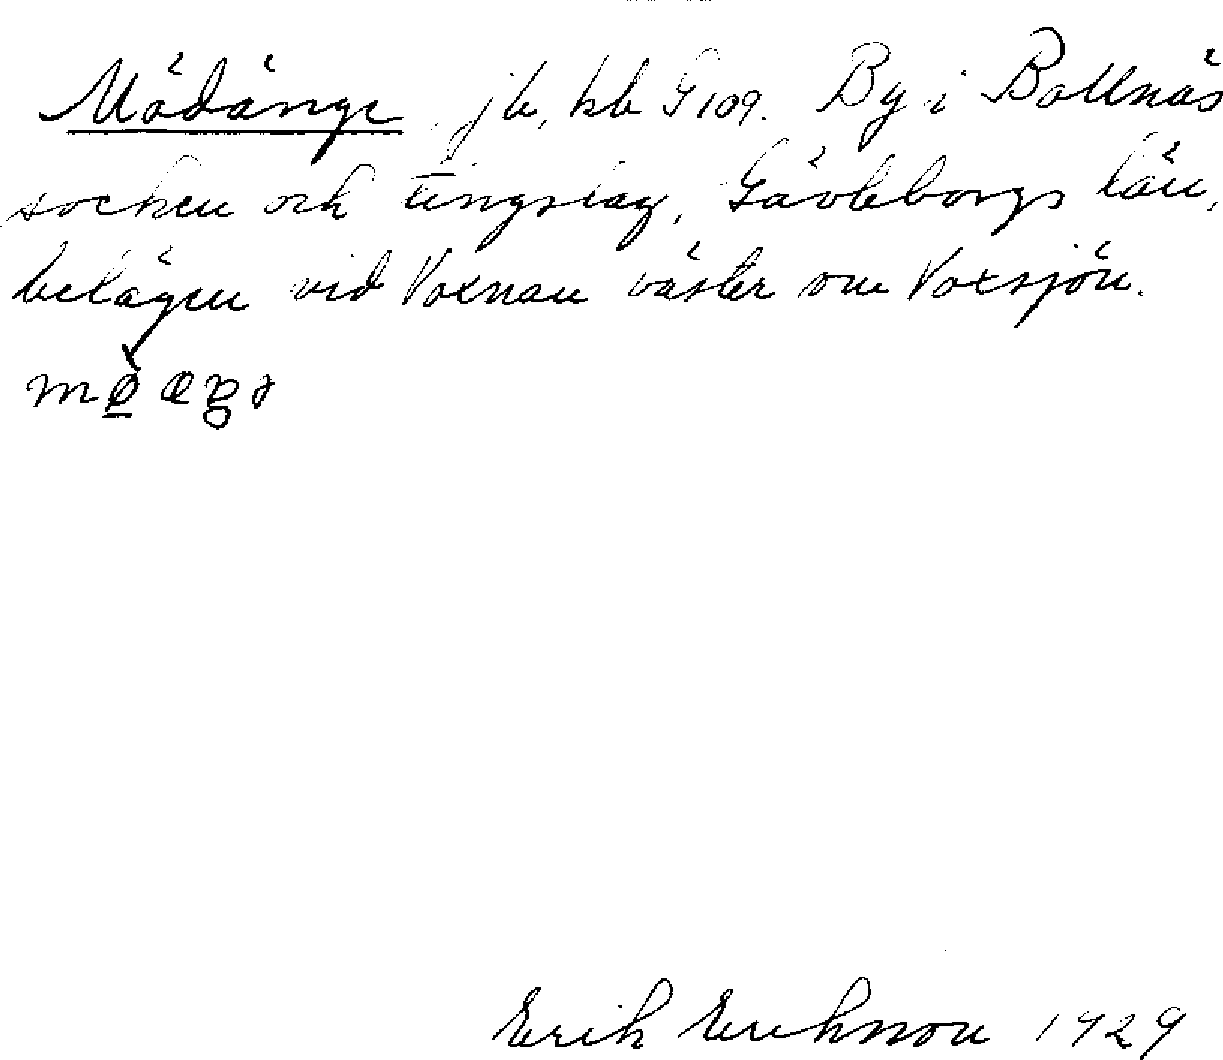 Mödänge jb, kb G 109. By i Bollnäs
socken och tingslag, Gävleborgs län,
belägen vid Voxnan väster om Voxsjön.
Erik Eriksson 1929